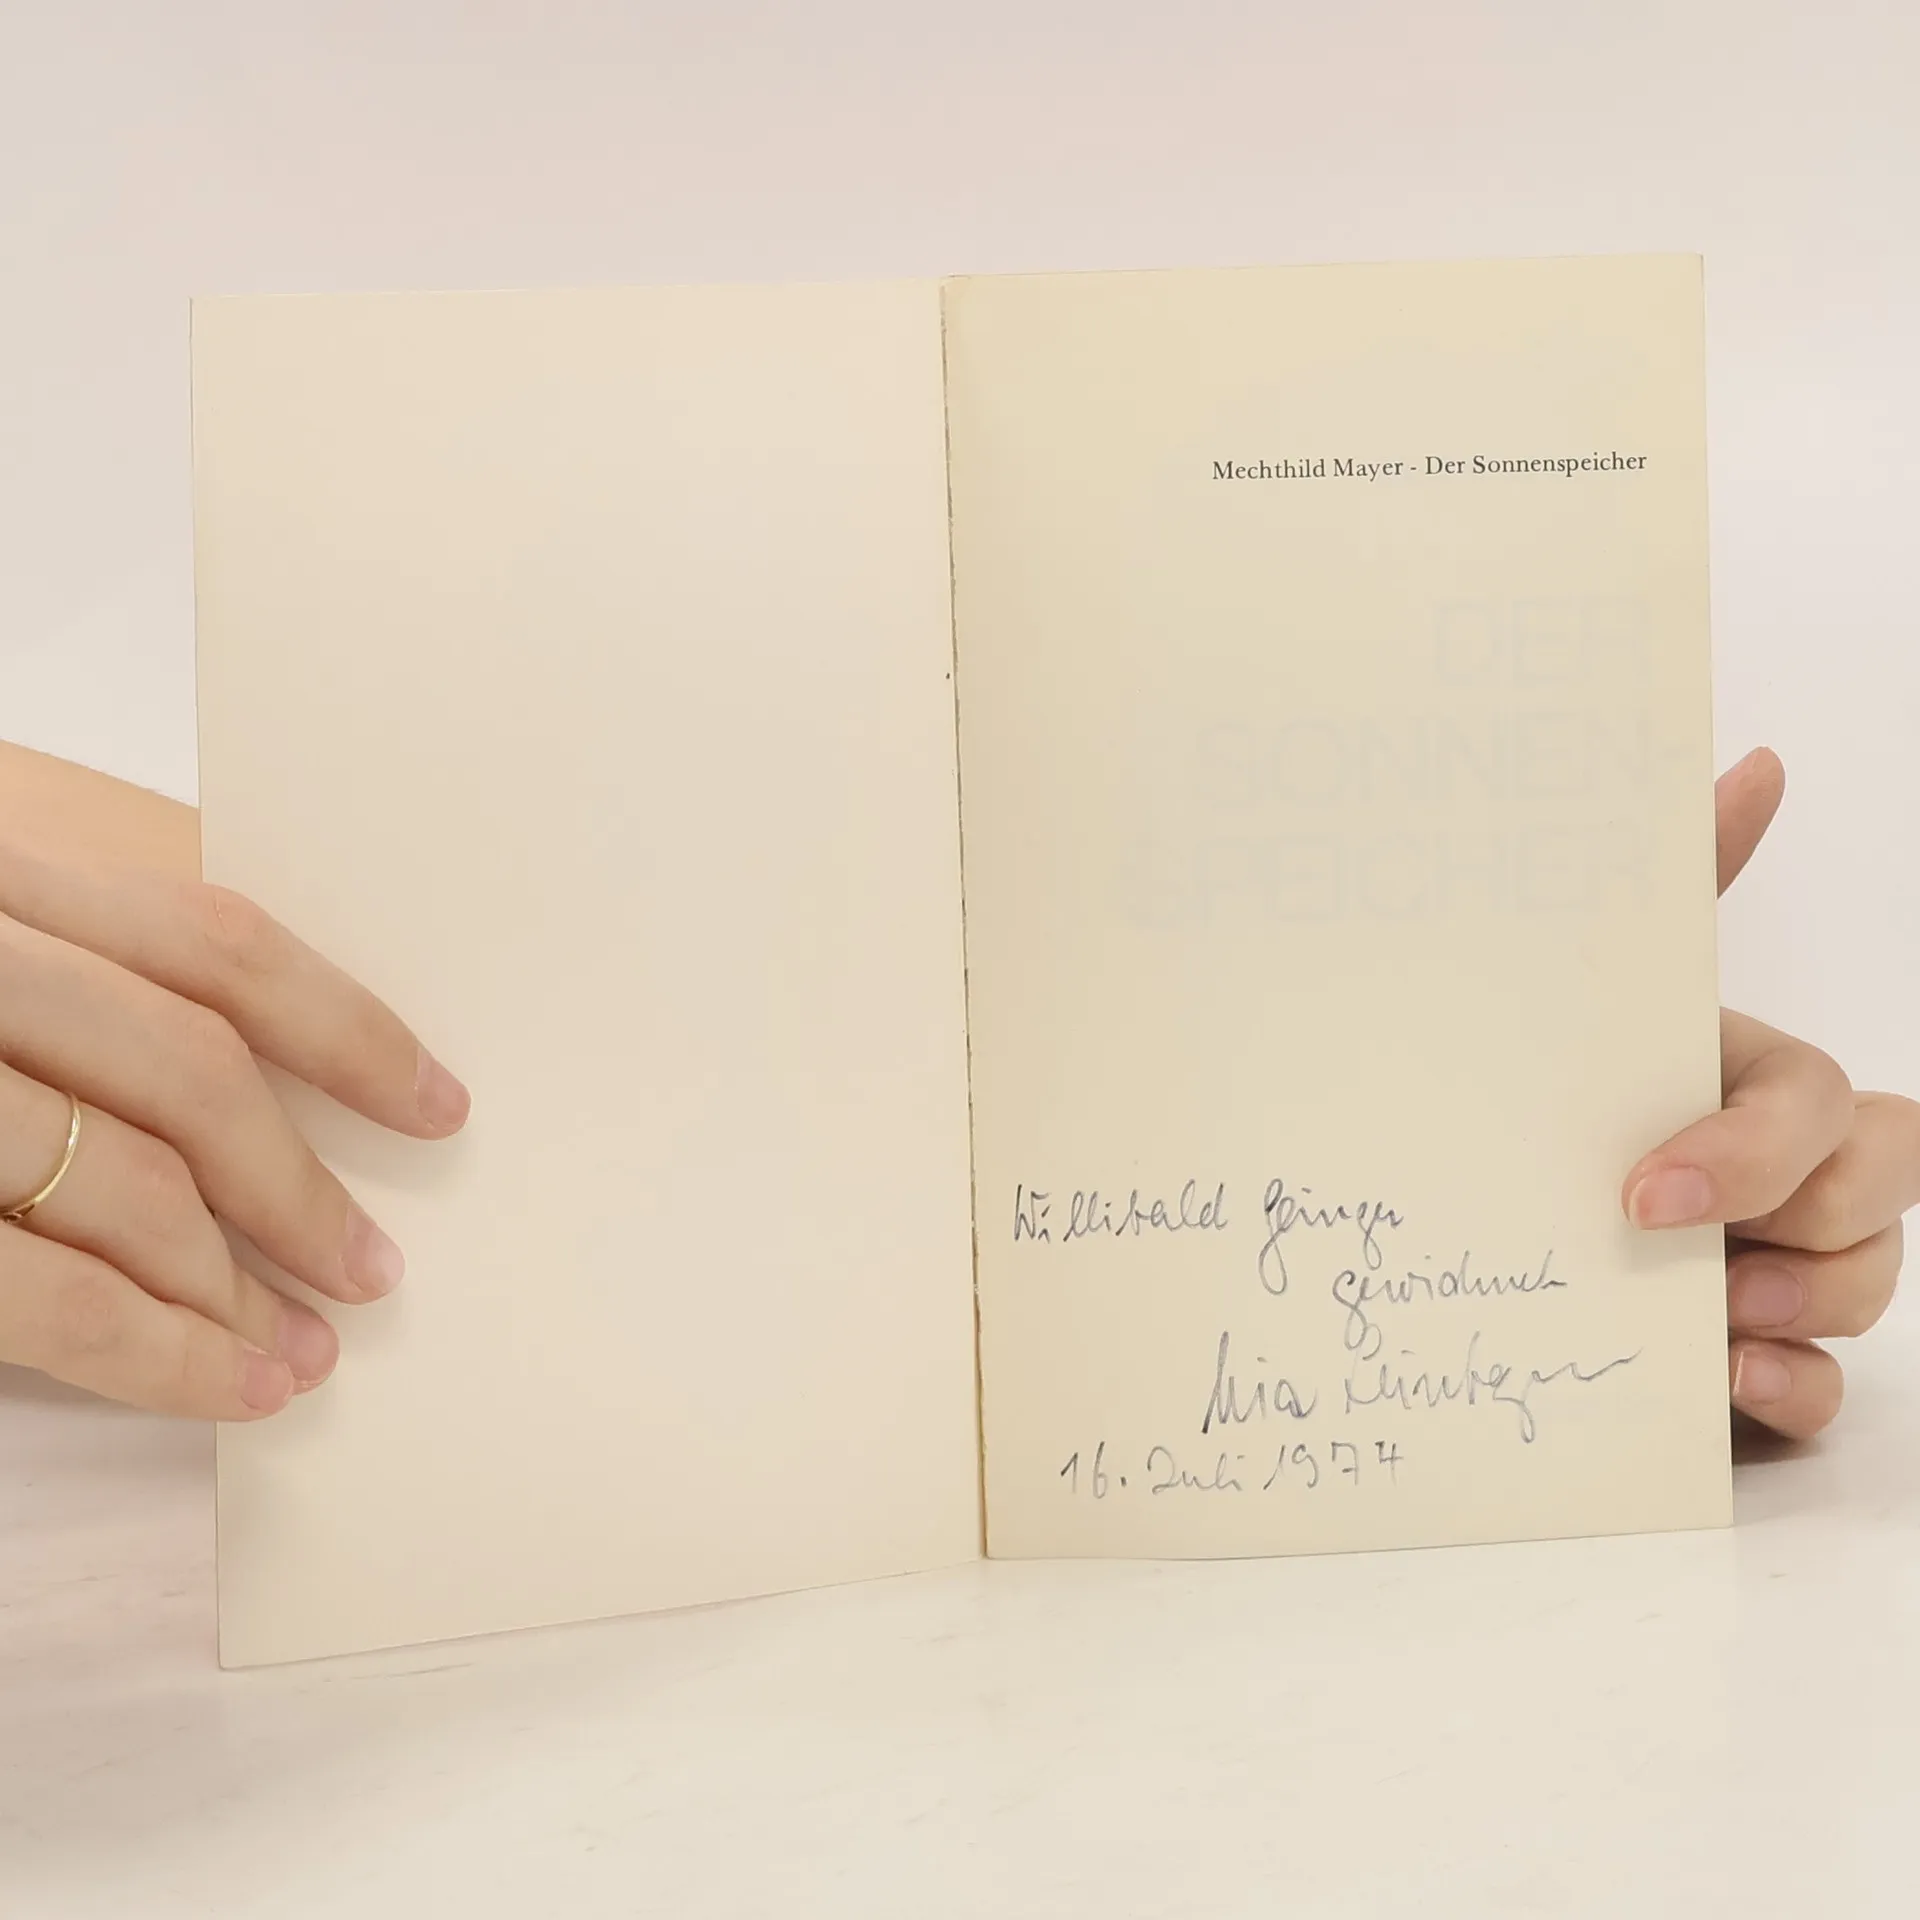 Mechthild Mayer - Der Sonnenspeicher
DER
SONNEN-
SPEICHER
Willibald
gewidmet
Mia
16. Juli 1974